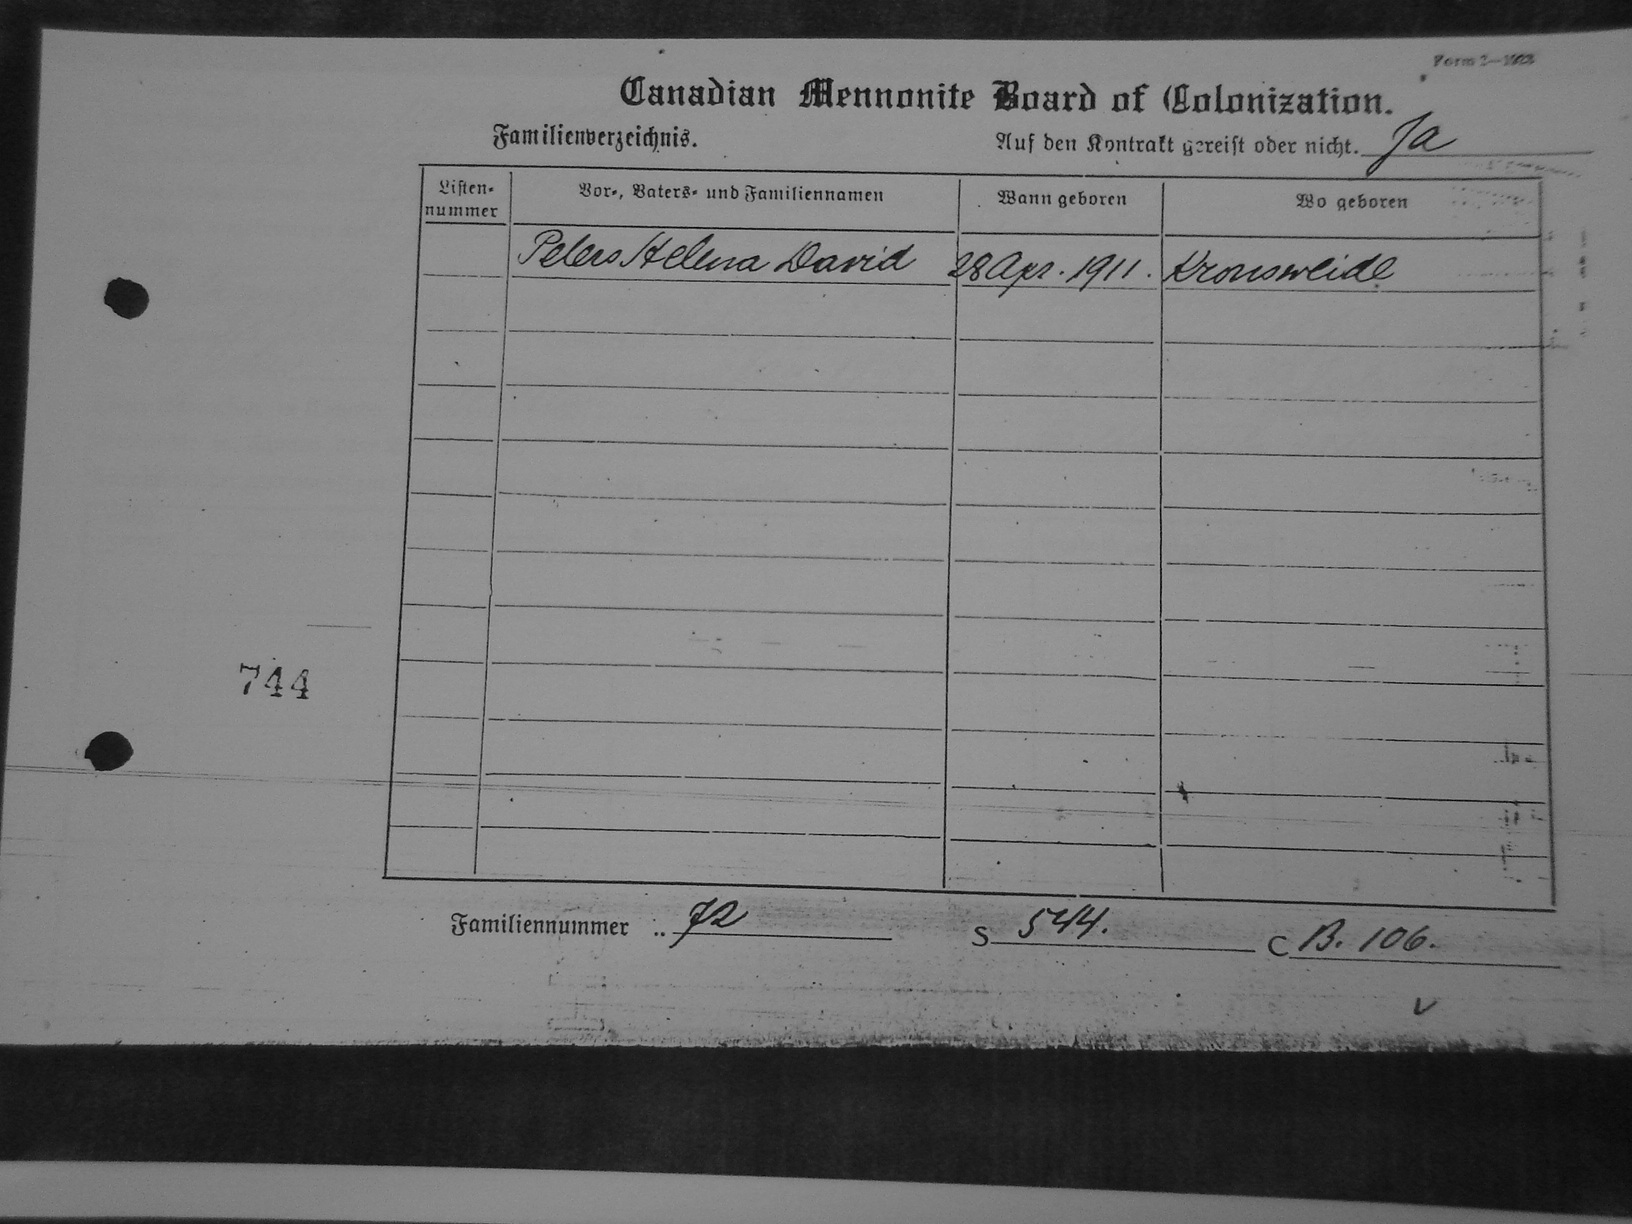 Form 2—1923
Canadian Mennonite Board of Colonization.
Familienverzeichnis.
Auf den Kontrakt gereist oder nicht. Ja
Listen-
nummer
Vor-, Vaters- und Familiennamen
Wann geboren
Wo geboren
Peters Helena David 28 Apr. 1911. Kronsweide
744
Familiennummer .. 72 S 544. C B. 106.